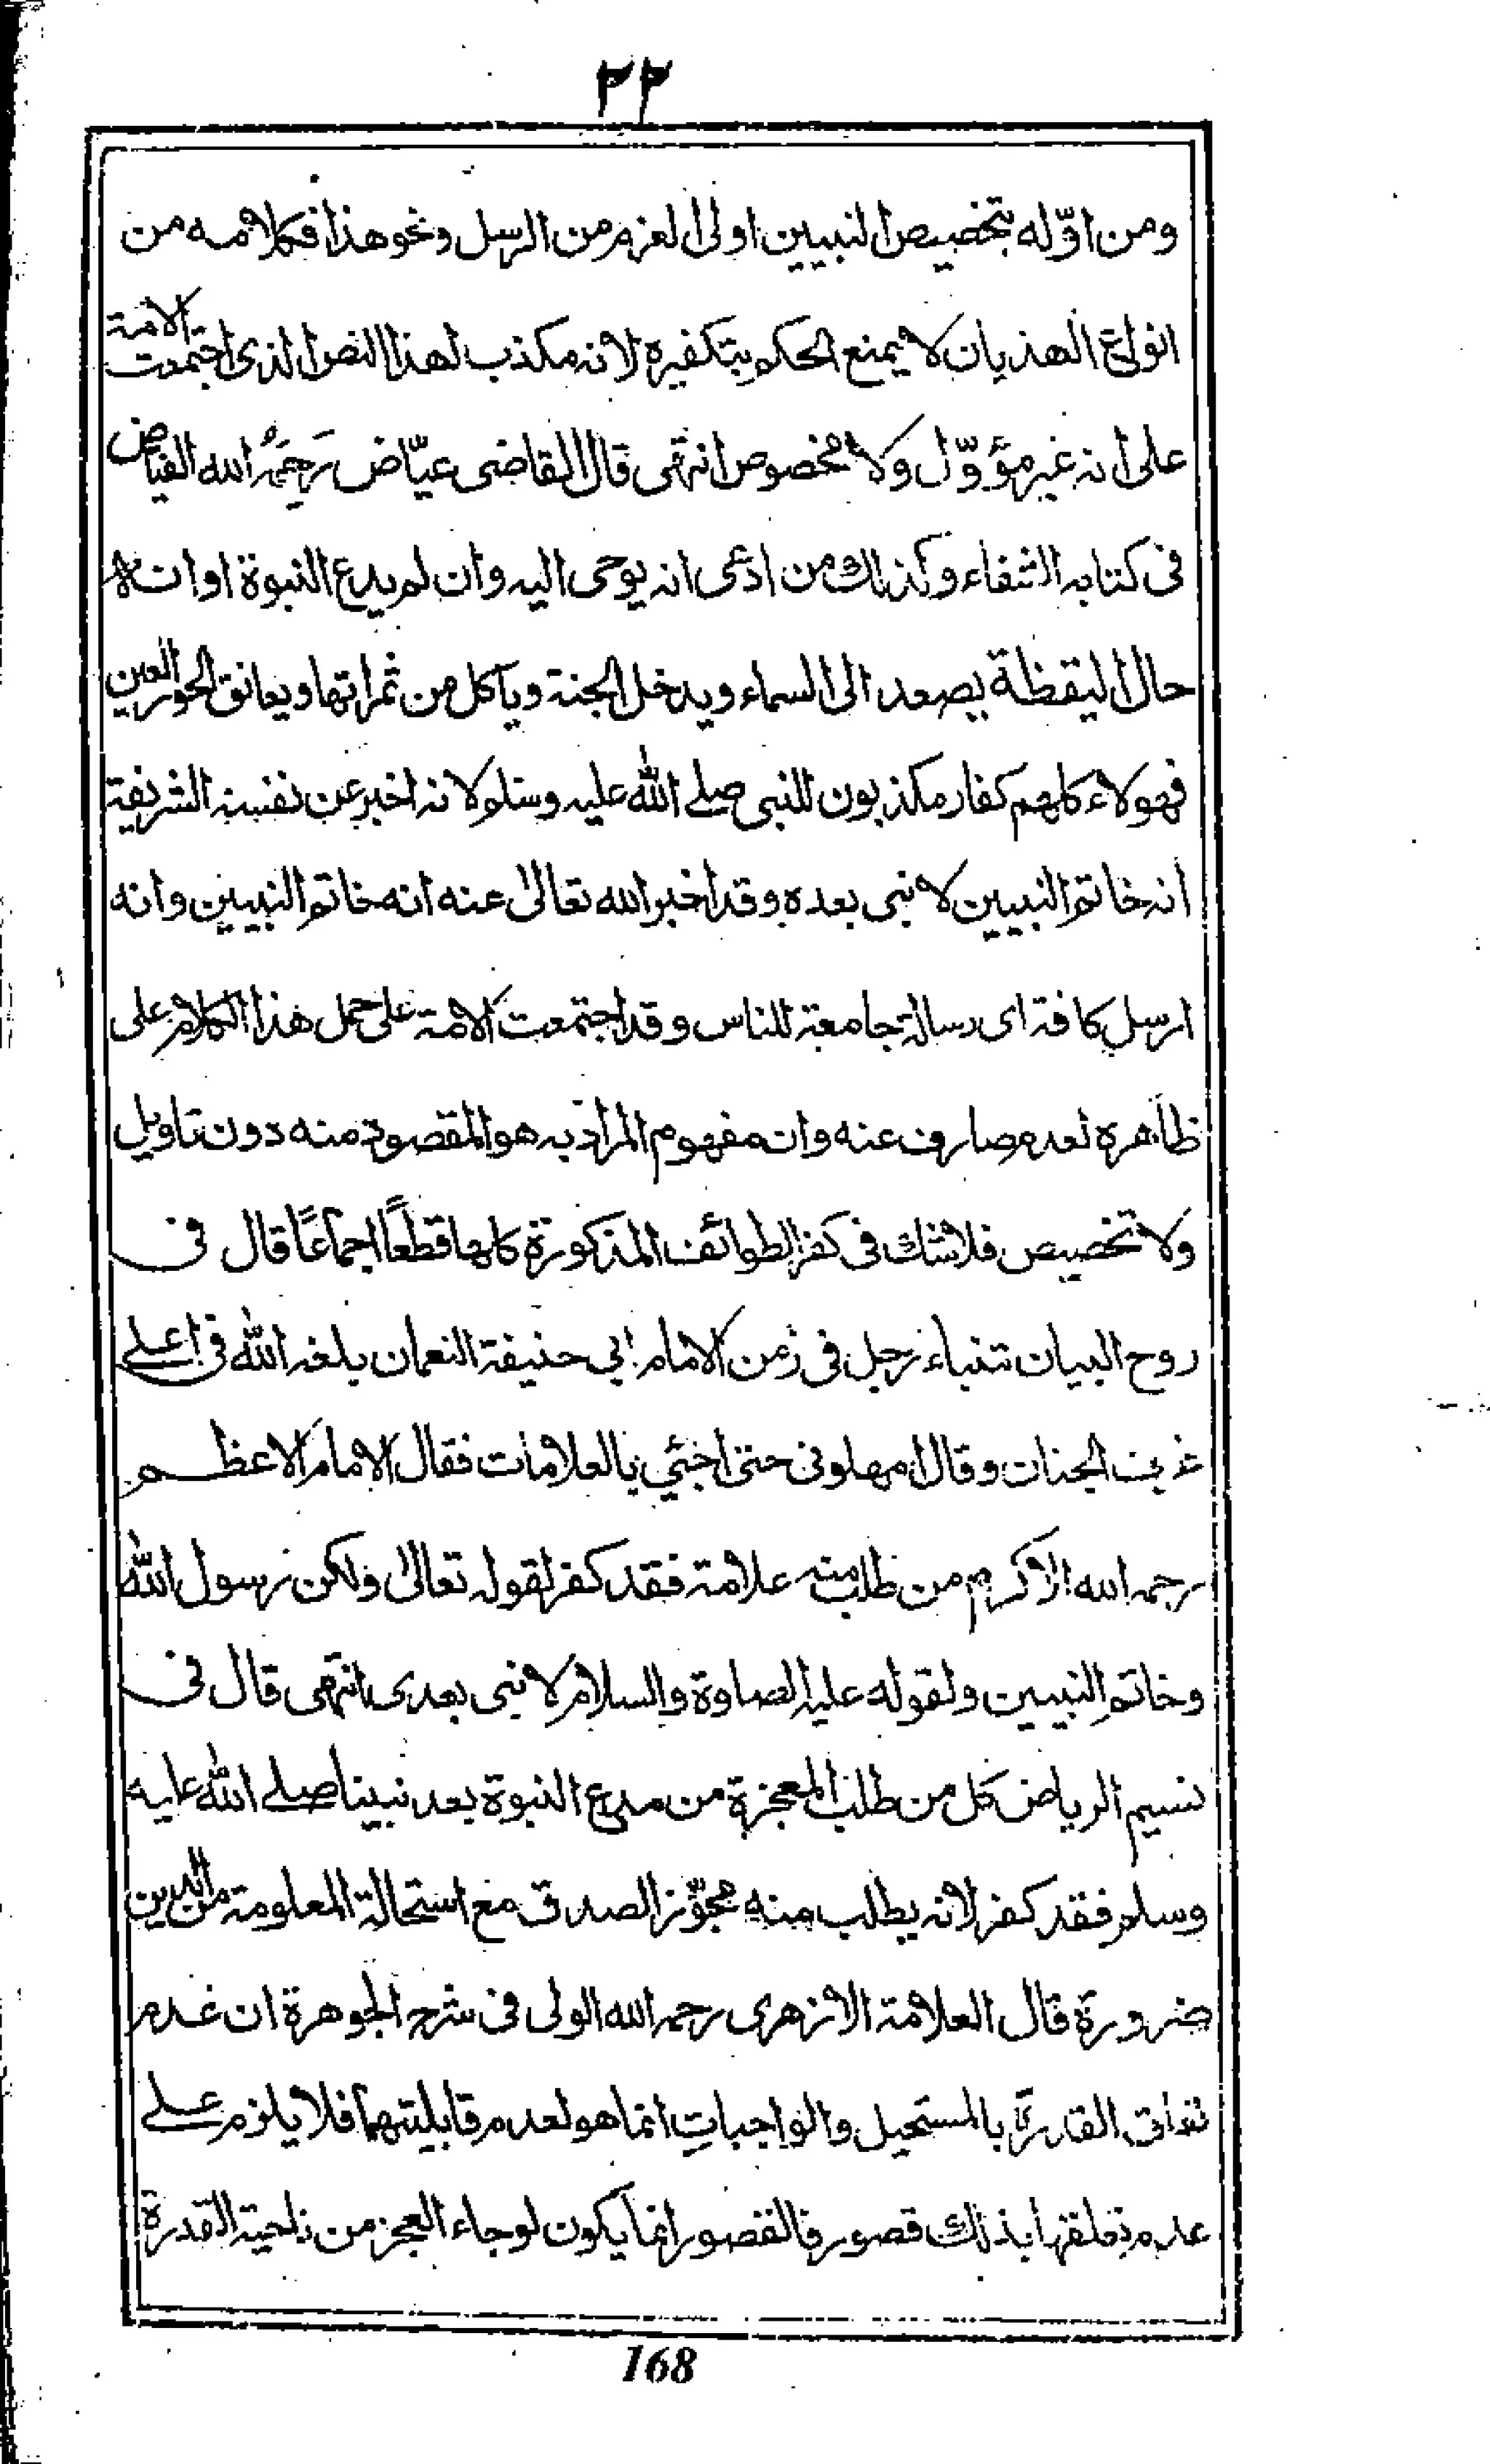 ٢٢
ومن اوّله بتخصيص النبيين اولى العزم من الرسل ونحو هذا فكلامه من
انواع الهذيان لا يمنع الحكم بتكفيره لانه مكذب لهذا النص الذى اجتمعت الامة
على انه غير مؤوّل ولا مخصوص انتهى قال القاضى عيّاض رَحِمَهُ الله الفياض
فى كتابه الشفاء وكذالك من ادّعى انه يوحى اليه وان لم يدع النبوة او انه
حال اليقظة يصعد الى السماء ويدخل الجنة وياكل من ثمراتها ويعانق الحور العين
فهولاء كلهم كفار مكذبون للنبى صلے اللّٰه عليه وسلم لانه اخبر عن نفسه الشريفة
انه خاتم النبيين لا نبى بعده وقد اخبر الله تعالىٰ عنه انه خاتم النبيين وانه
ارسل كافة اى رسالة جامعة للناس وقد اجتمعت الامة على حمل هذا الكلام على
ظاهره لعدم صارف عنه وان مفهوم المراد به هو المقصود منه دون تاويل
ولا تخصيص فلا شك فى كفر الطوائف المذكورة كلها قطعًا اجماعًا قال فى
روح البيان تنباء رجل فى زمن الامام ابى حنيفة النعمان بلغه اللّٰه فى اعلے
غرف الجنات وقال امهلونى حتى اجئي بالعلامات فقال الامام الاعظم
رحمه الله الاكرم من طلب منه علامة فقد كفر لقوله تعالىٰ ولكن رسول اللّٰه
وخاتم النبيين ولقوله عليه الصلوة والسلام لا نبى بعدى انتهى قال فى
نسيم الرياض كل من طلب المعجزة من مدعى النبوة بعد نبينا صلے اللّٰه عليه
وسلم فقد كفر لانه يطلب منه مجوّز الصدق مع استحالة المعلومة من الدين
ضرورة قال العلامة الازهرى رحمه الله الولى فى شرح الجوهرة ان عدم
تعلق القدرة بالمستحيل والواجبات انما هو لعدم قابليتهما فلا يلزم علے
عدم تعلقها بذلك قصور فالقصور انما يكون لو جاء العجز من ناحية القدرة
168